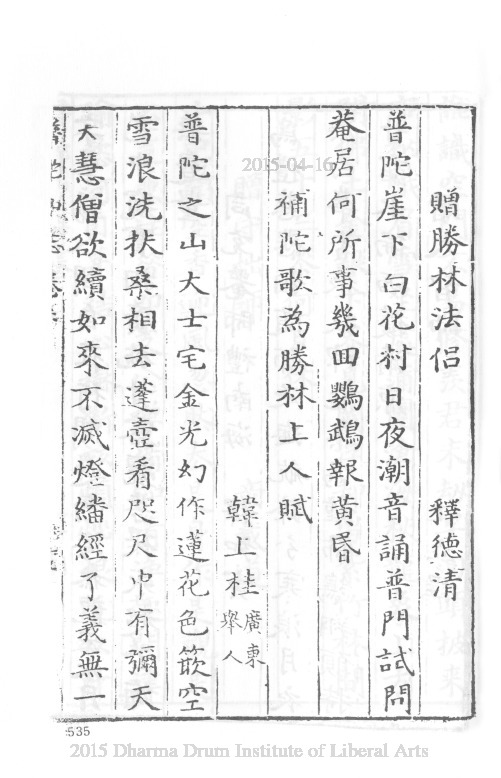 贈勝林法侶 釋德清
普陀崖下白花村日夜潮音誦普門試問
菴居何所事幾回鸚鵡報黃昏
補陀歌為勝林上人賦
韓上桂廣東舉人
普陀之山大士宅金光幻作蓮花色簸空
雪浪洗扶桑相去蓬壺看咫尺中有彌天
大慧僧欲續如來不滅燈繙經了義無一
2015-04-16
:535
2015 Dharma Drum Institute of Liberal Arts